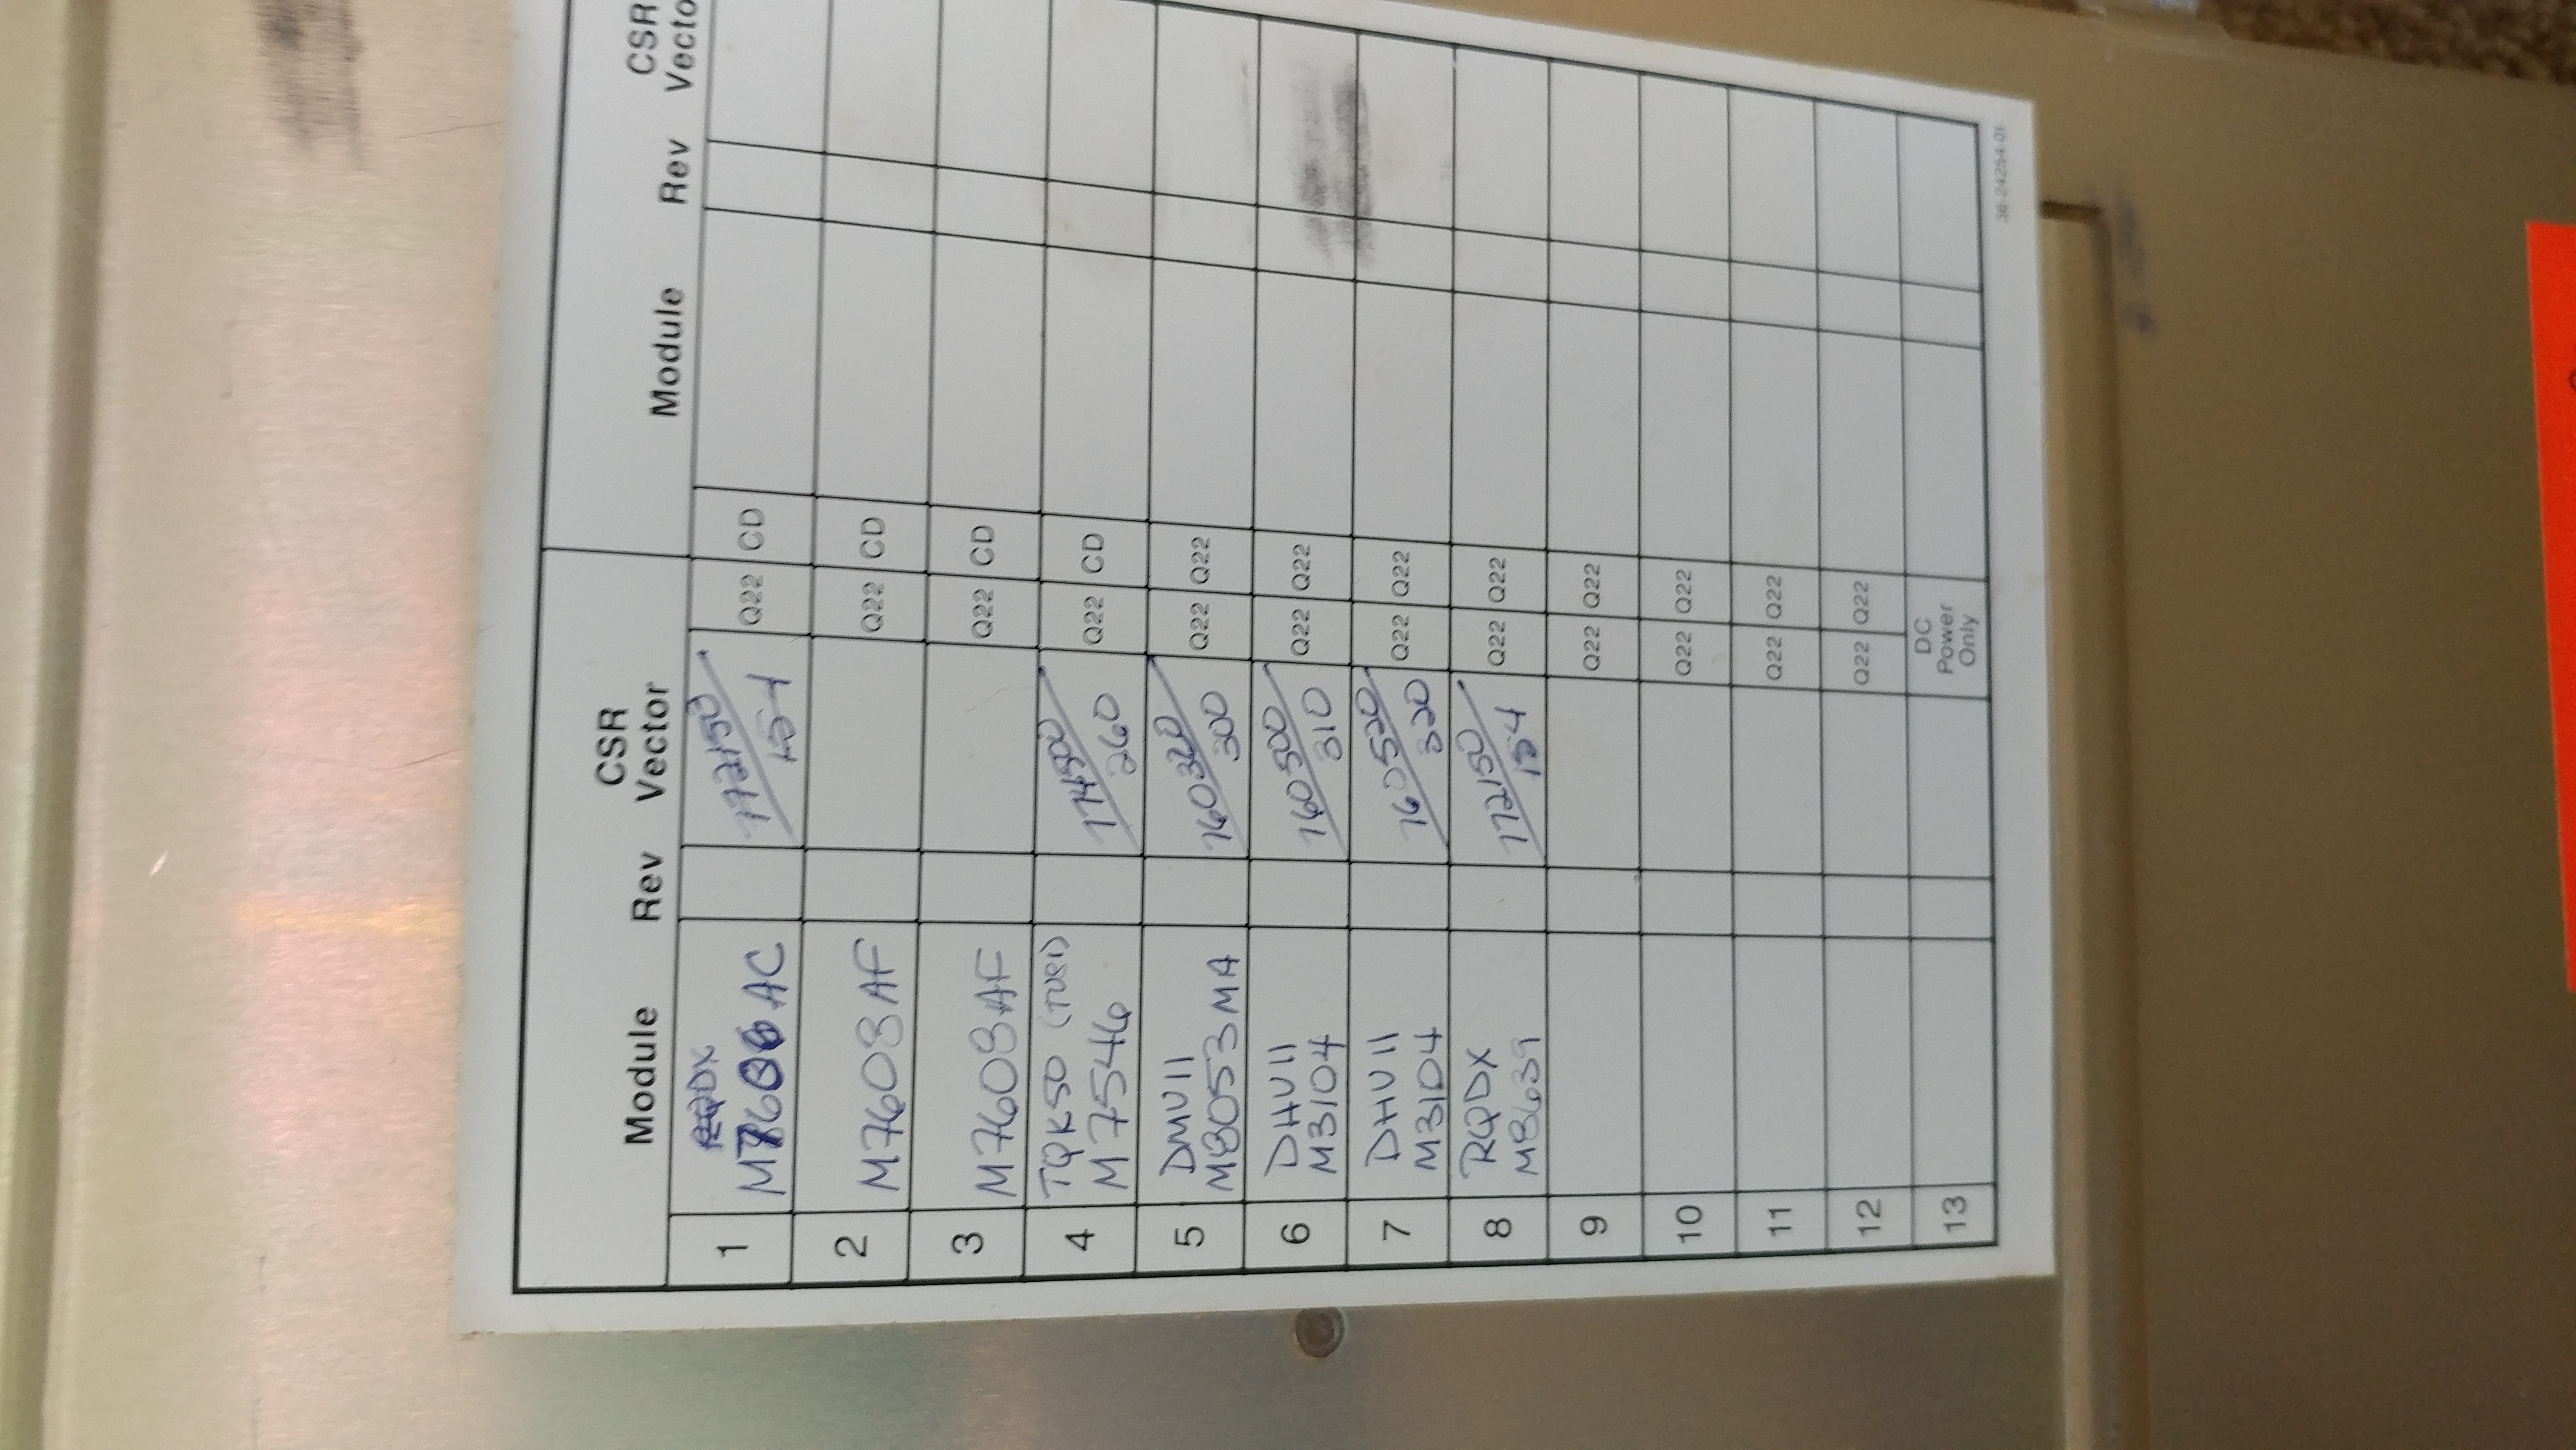 CSR
Vector
Module Rev
CSR
Vector
Module Rev
1 M7606 AC 772150/ 154 Q22 CD
2 M7608 AF Q22 CD
3 M7608 AF Q22 CD
4 TQK50 (TU81) 774500/ Q22 CD
M7546 260
5 DMV11 760320/ Q22 Q22
M8053 MA 300
6 DHV11 760500/ Q22 Q22
M3104 310
7 DHV11 760520/ Q22 Q22
M3104 320
8 RQDX 772150/ Q22 Q22
M8639 154
9 Q22 Q22
10 Q22 Q22
11 Q22 Q22
12 Q22 Q22
13 DC
Power
Only
36-24254-01